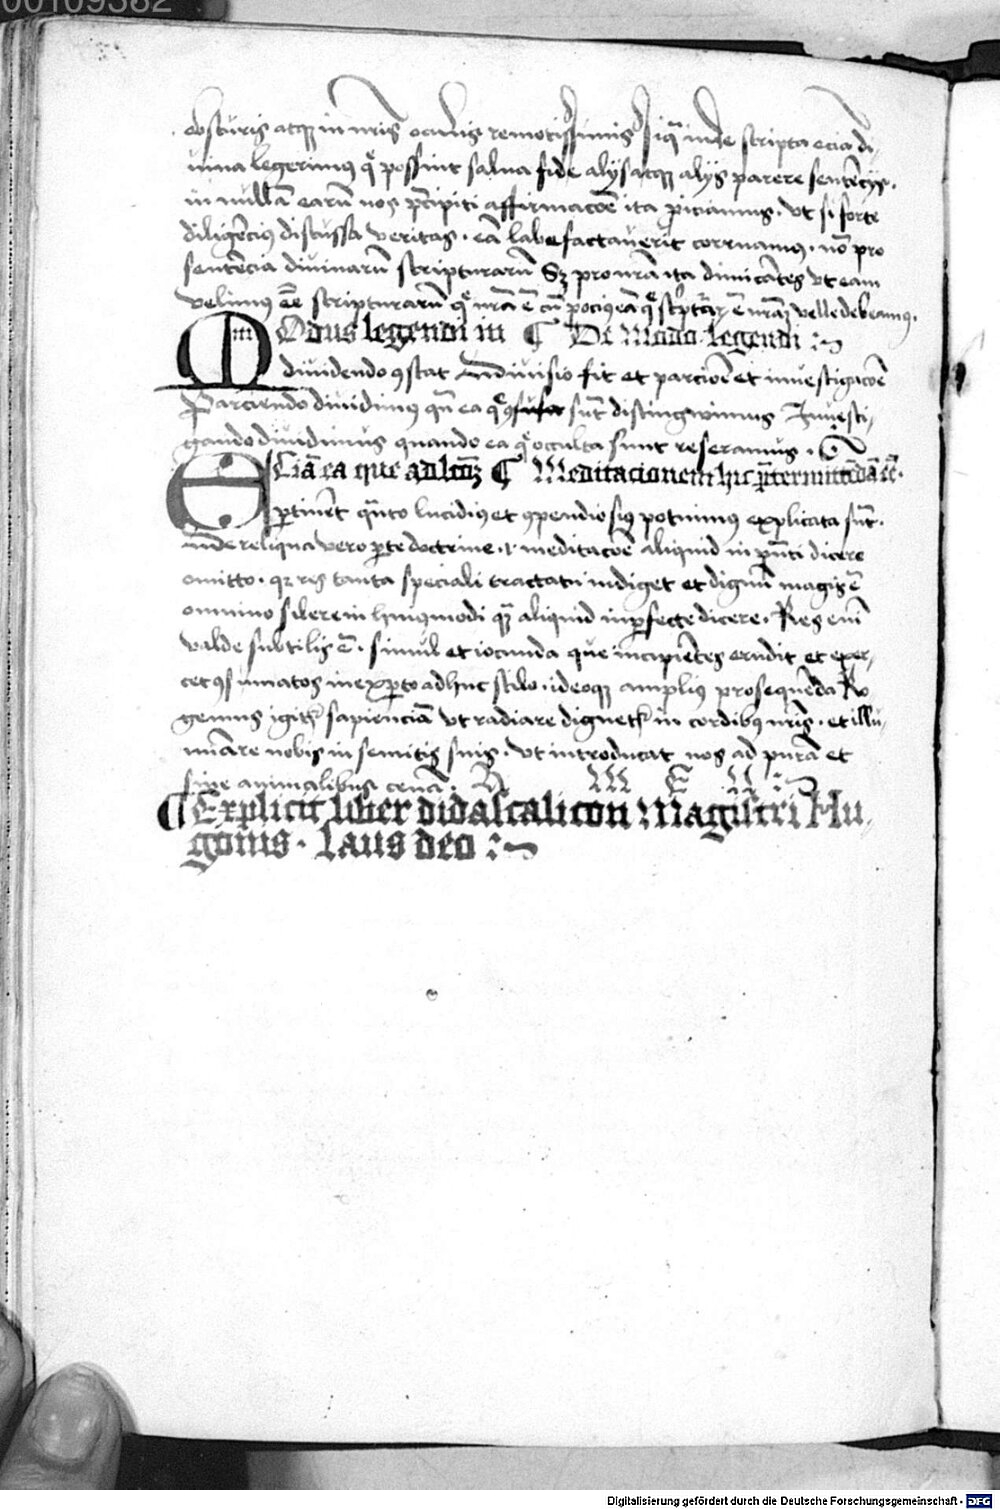 00109382
obscuris atq₃ in nr̄is ocul̕is remotissimis siqua inde scripta eciā di-
uina legerimus q̄ possint salua fide alijs atq₃ alijs parere sentēcijs.
in nullā earū nos p̄cipiti affirmacōe ita ꝓiciamus. vt si forte
diligēcius discussa veritas. eā labefactauerit corruamus. nō pro
sentēcia diuinarū scripturarū S₃ pro nr̄a ita dimicātes vt eam
velimus ēe scripturarū q̄ nr̄a ē cū pocius eā q̄ sc̕pturar̄ ē nr̄aꝫ velle debeamus.
MOdus legendi in ¶ De Modo legendi :~
diuidendo ꝯstat Diuisio fit et parcioē et inuestigacōe
Parciendo diuidimus qn̄ ea q̄ ꝯfusa sūt distingwimus Inuesti-
gando diuidimus quando ea q̄ occulta sunt reseramus.
ECiā ea que ad lcōꝫ ¶ Meditacionem hic p̄termittēdā ēē.
ꝑtinēt qn̄to lucidius et ꝯpendiosius potuimus explicata sūt.
inde reliqua vero ꝑte doctrine .i. meditacōe aliquid in pn̄ti dicere
omitto. qꝛ res tanta speciali tractatu indiget et dignū magis ē
omnino silere in huiusmodi qꝫ aliquid inꝑfecte dicere. Res eni̅
valde subtilis ē. simul et iocunda que incipiētes erudit et exer-
cet ꝯsummatos inexꝑto adhuc stilo. ideoq₃ amplius prosequēda Ro
gemus igit᷑ sapienciā vt radiare dignet᷑ in cordibus nr̄is. et illu-
mīare nobis in semitis suis. vt introducat nos ad purā et
sine animalibus cenā. A M E N :~
¶ Explicit liber didascalicon Magistri Hu-
gonis. Laus deo :~
Digitalisierung gefördert durch die Deutsche Forschungsgemeinschaft - DFG